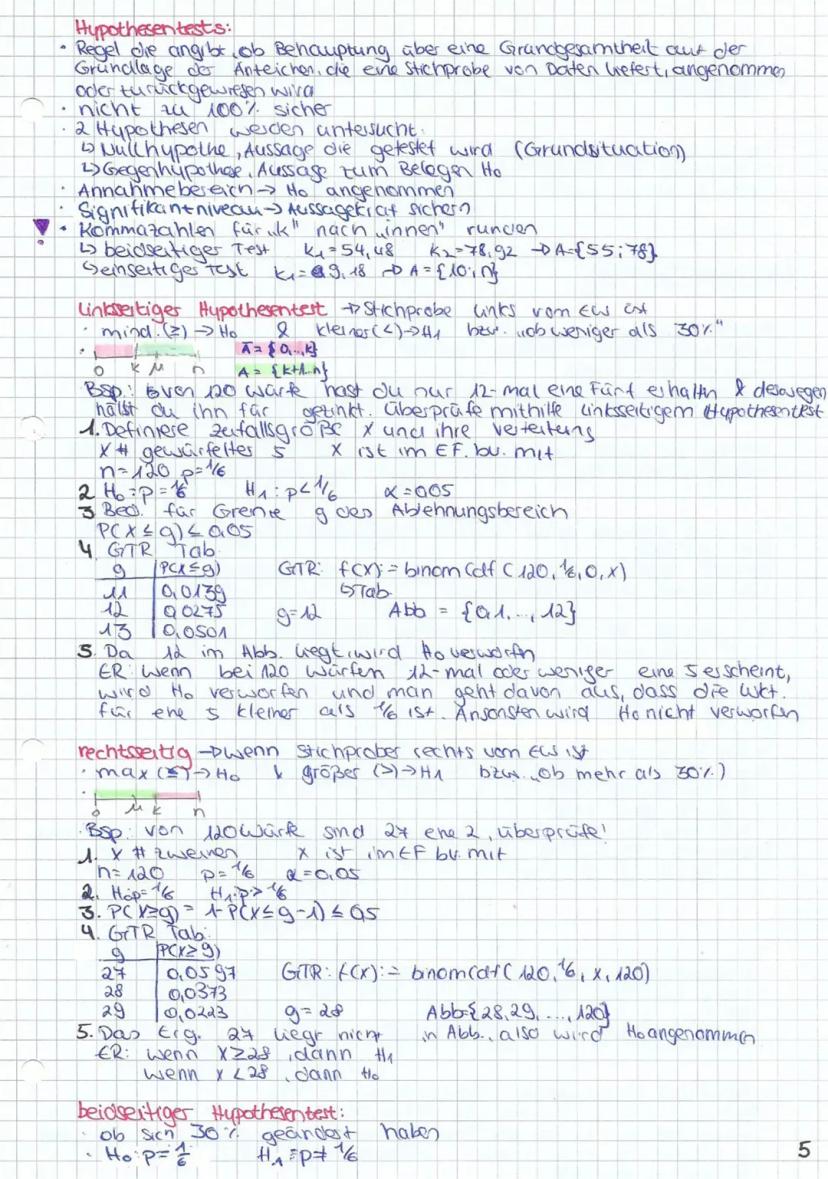 Hypothesentests:
• Regel die angibt, ob Behauptung über eine Grundgesamtheit auf der
Grundlage der Anteichen, die eine Stichprobe von Daten liefert, angenommen
oder zurückgewiesen wird
• nicht zu 100% sicher
• 2 Hypothesen werden untersucht.
↳ Nullhypothe, Aussage die getestet wird (Grundsituation)
↳ Gegenhypothese, Aussage zum Belegen H0
• Annahmebereich → H0 angenommen
• Signifikantniveau → Aussagekraft sichern
! • Kommazahlen für "k" nach "innen" runden
↳ beidseitiger Test k1=54,48 k2=78,92 → A={55;78}
↳ einseitiges Test k1=9,18 → A={10;n}
linksseitiger Hypothesentest → Stichprobe links vom EW ist
• mind. (≥) → H0 & kleiner (<) → H1 bzw. "ob weniger als 30%"
• Ā = {0,..,k}
0 k μ n A = {k+1..n}
Bsp.: Bven 120 würfe hast du nur 12-mal eine Fünf erhaltn & deswegen
hälst du ihn für gezinkt. Überprüfe mithilfe linksseitigem Hypothesentest
1. Definiere zufallsgröße X und ihre verteilung
X # gewürfeltes 5 X ist im EF. bv. mit
n=120 p=1/6
2 H0: p=1/6 H1: p<1/6 α=0,05
3 Bed. für Grenze g des Ablehnungsbereich
P(X≤g)≤0,05
4. GTR Tab.
g P(X≤g) GTR: f(x):= binomCdf(120,1/6,0,x)
11 0,0139 ↳Tab
12 0,0275 g=12 Abb = {0,1,..., 12}
13 0,0501
5. Da 12 im Abb. liegt, wird H0 verworfn
ER: Wenn bei 120 würfen 12-mal oder weniger eine 5 erscheint,
wird H0 verworfen und man geht davon aus, dass die Wkt.
für ene 5 kleiner als 1/6 ist. Ansonsten wird H0 nicht verworfen
rechtsseitig → wenn Stichprober rechts vom EW ist
• max (≤) → H0 & größer (>) → H1 bzw. "ob mehr als 30%)
0 μ k n
• Bsp: von 120 würfe sind 27 ene 2, überprüfe!
1. X # zweien X ist im EF bv. mit
n=120 p=1/6 α=0,05
2. H0: p=1/6 H1: p>1/6
3. P(X≥g) = 1-P(X≤g-1) ≤ 0,5
4. GTR Tab:
g P(X≥g)
27 0,0597 GTR: f(x):= binomcdf(120,1/6,x,120)
28 0,0373
29 0,0223 g=28 Abb={28,29,...,120}
5. Das Erg. 27 liegt nicht in Abb., also wird H0 angenommen
ER: wenn X≥28, dann H1
wenn X<28, dann H0
beidseitiger Hypothesentest:
• ob sich 30% geändert haben
• H0: p=1/6 H1: p≠1/6
5